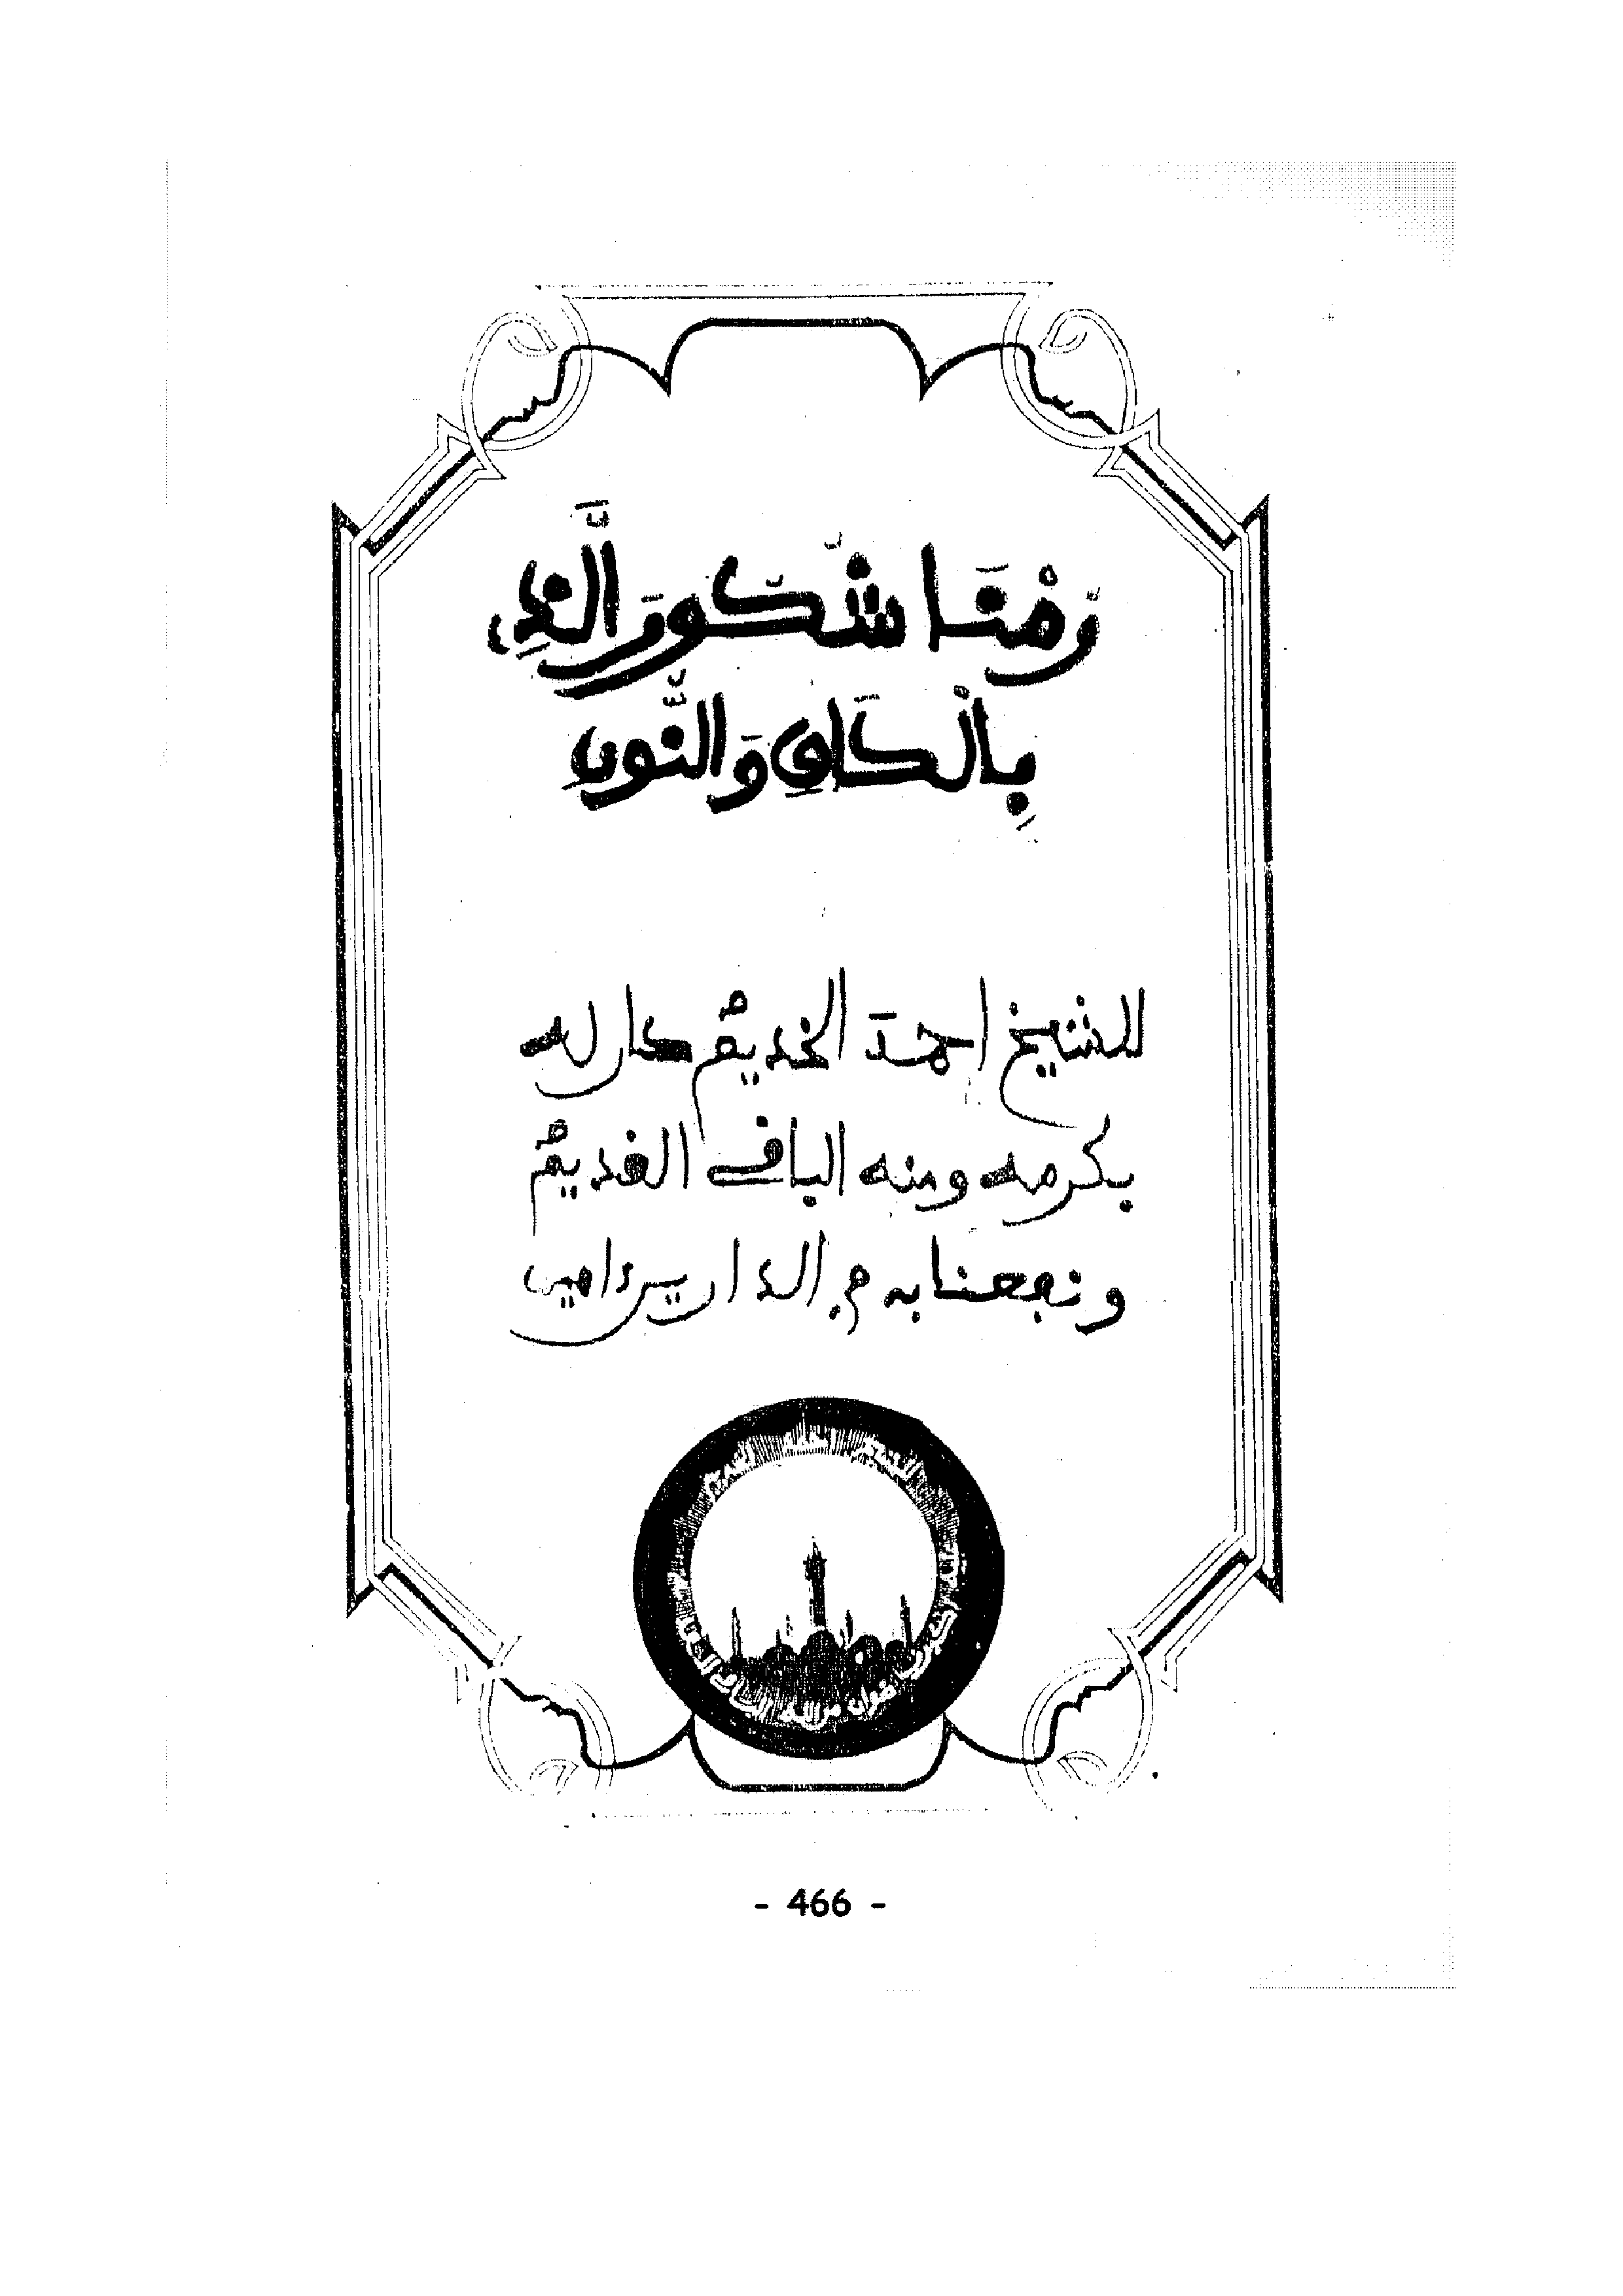 رُمْنَا شُكُورَ الَّذِي
بِالْكَافِ وَالنُّونِ
للشيخ احمد الخديم كان له
بكرمه ومنه الباقي القديم
ونفعنا به في الدارين ءامين
- 466 -